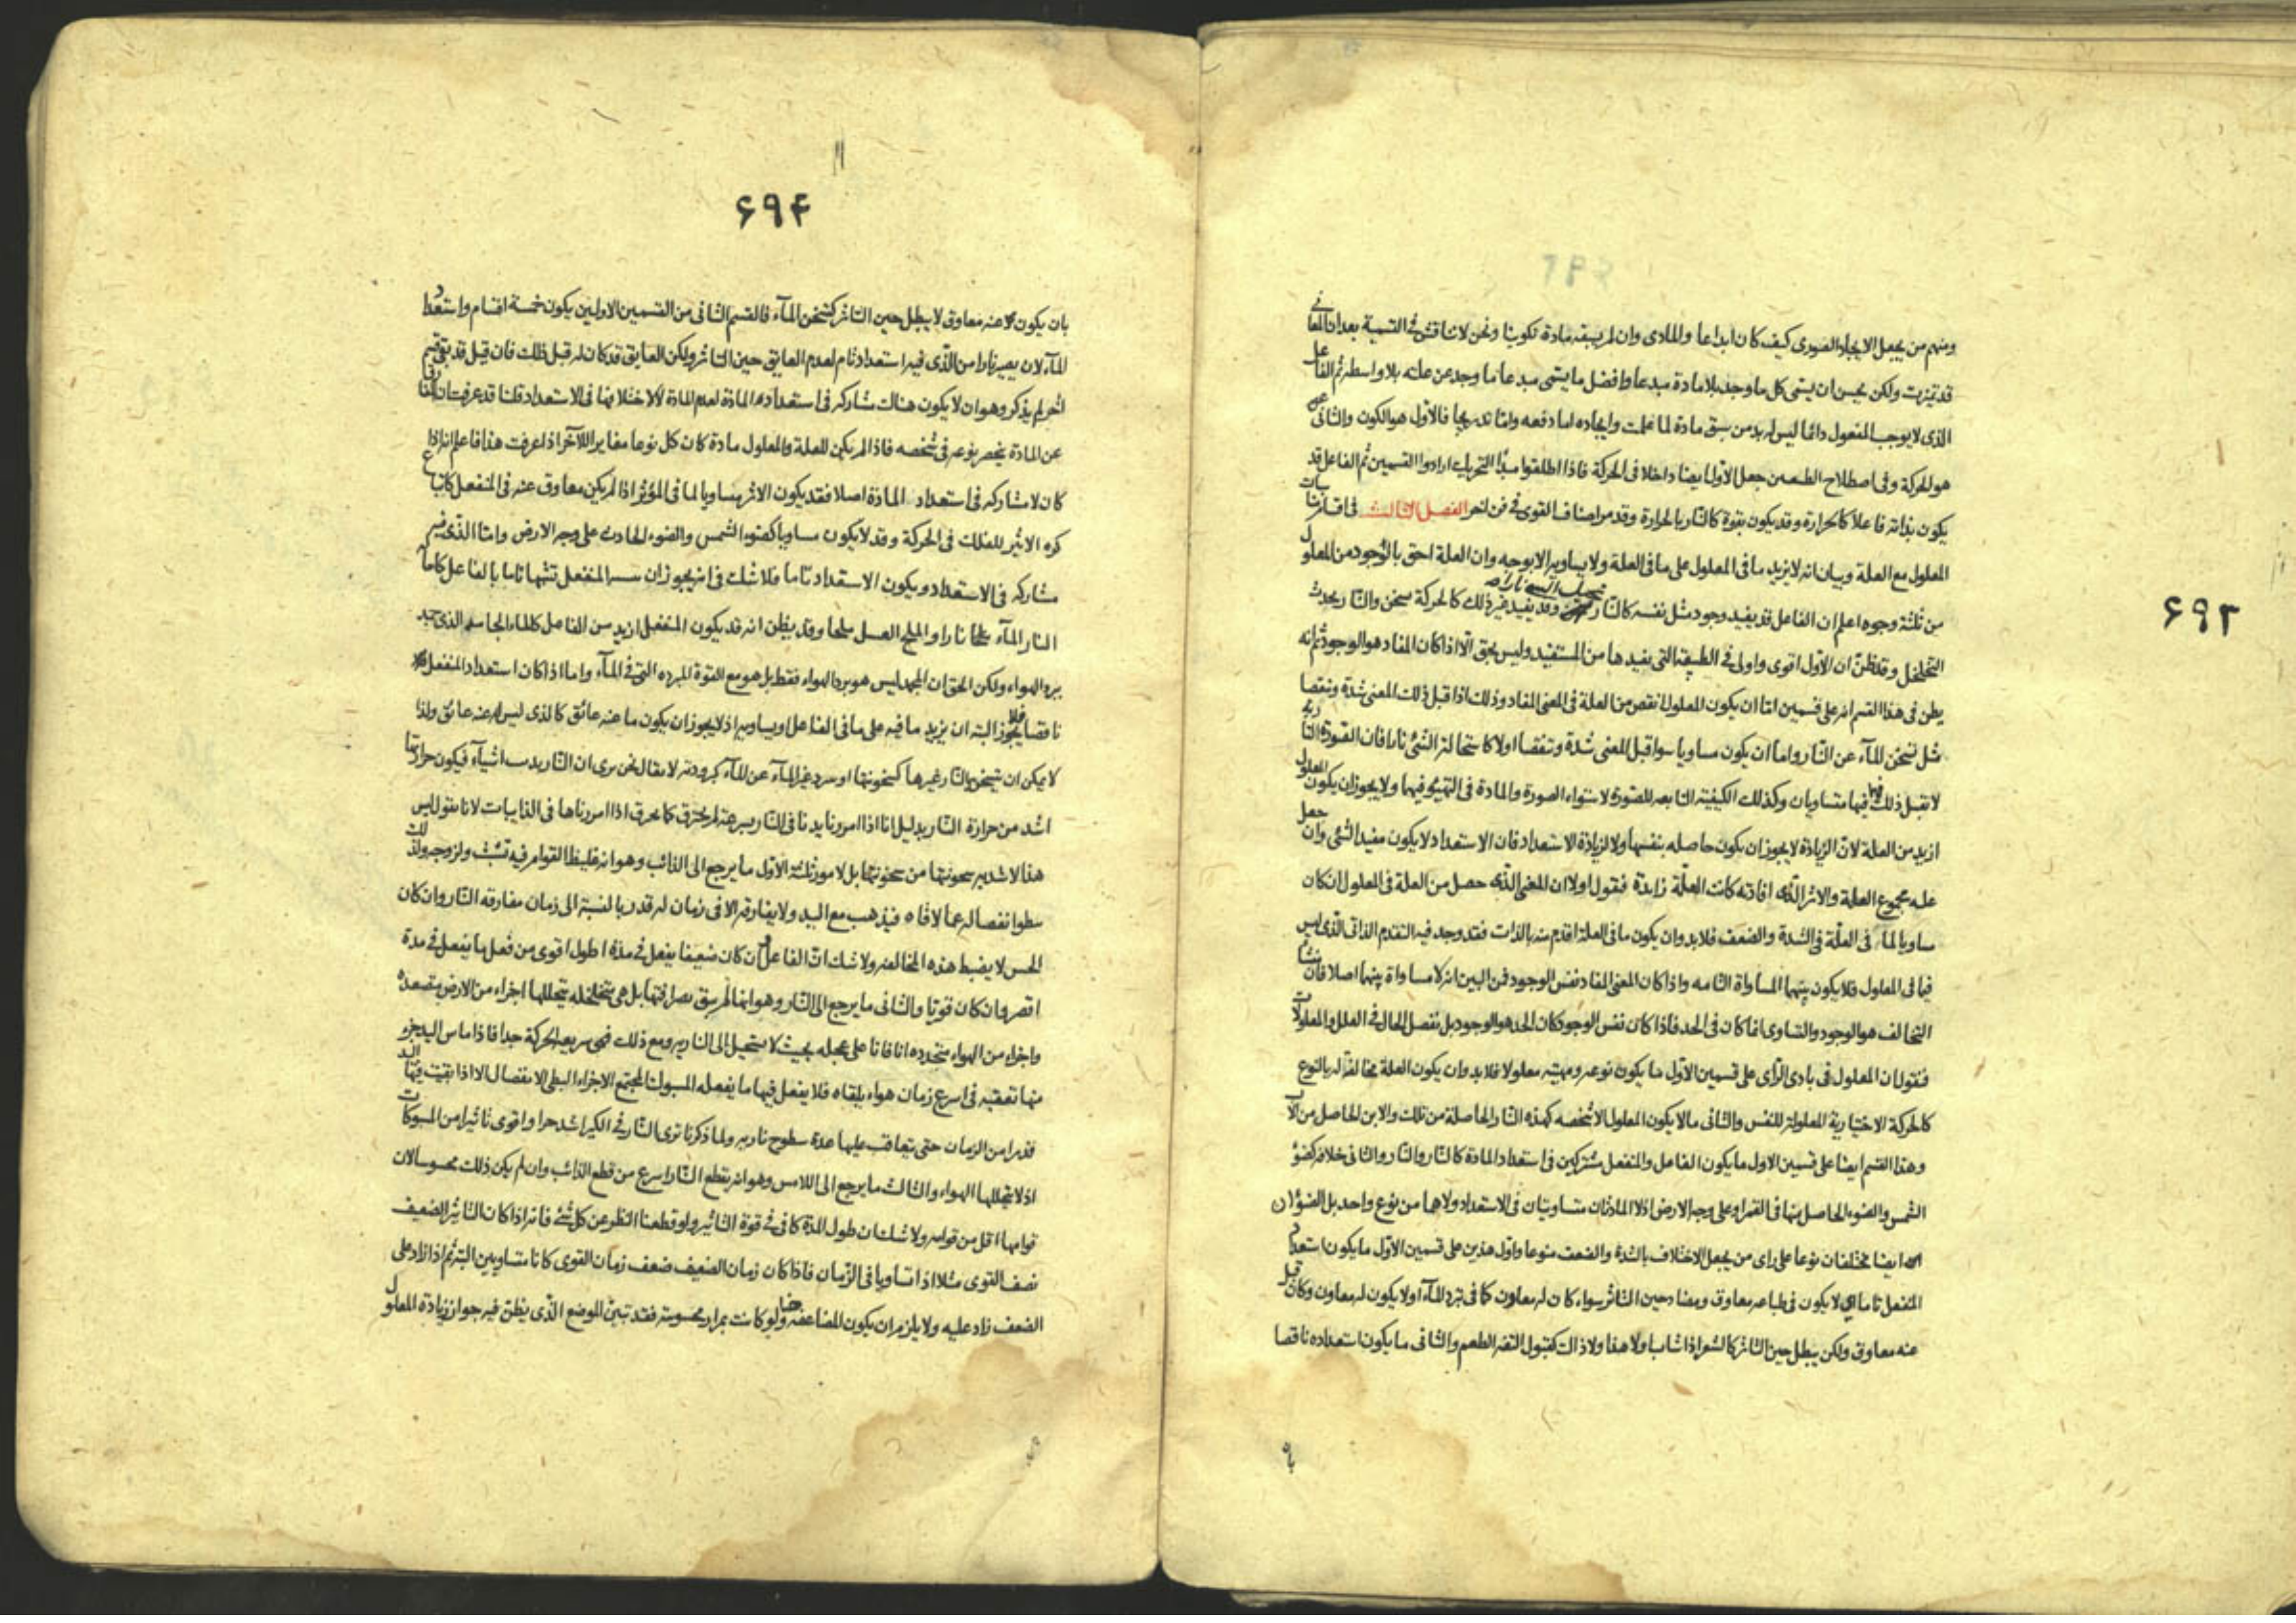 ۶۹۳
ومنهم من يجعل الايجاد الصورى كيف كان ابداعا والمادى وان لم يسبقه مادة تكوينا ونحن لا نناقش فى التسمية بعد ان المعانى
قد تميزت ولكن يحسن ان يسمى كل ما وجد بلا مادة مبدعا وافضل ما يسمى مبدعا ما وجد عن علته بلا واسطه ثم الفاعل
الذى لا يوجب المفعول دائما ليس له بد من سبق مادة لما علمت وايجاده اما دفعه واما تدريجا فالاول هو الكون والثانى
هو الحركة وفى اصطلاح الطبيعيين جعل الاول ايضا داخلا فى الحركة فاذا اطلقوا مبدأ التحريك ارادوا القسمين ثم الفاعل قد
يكون بذاته فاعلا كالحرارة وقد يكون بقوة كالنار بالحرارة وقد مر اصناف القوى فى فن اخر الفصل الثالث فى
المعلول مع العلة وبيان انه لا يزيد ما فى المعلول على ما فى العلة ولا يساويه الا بوجه وان العلة احق بالوجود من المعلول
من ثلثة وجوه اعلم ان الفاعل قد يفيد وجود مثل نفسه كالنار وقد يفيد غير ذلك كالحركة تسخن والنار يحدث
التخلخل وقد ظن ان الاول اقوى واولى فى الطبيعة التى يفيدها من المستفيد وليس بحق الا اذا كان المفاد هو الوجود ثم انه
يظن فى هذا القسم انه على قسمين اما ان يكون المعلول انقص من العلة فى المعنى المفاد وذلك اذا قبل ذلك المعنى شدة ونقصا
مثل تسخن المآء عن النار واما ان يكون مساويا سواء قبل المعنى شدة ونقصا اولا كاستحالة الشئ نارا فان الصورة النارية
لا تقبل ذلك فهما فيها متساويان وكذلك الكيفية التابعه للصورة لاستواء الصورة والمادة فى التهيئ فيهما ولا يجوز ان يكون المعلول
ازيد من العلة لان الزيادة لا يجوز ان يكون حاصله بنفسها ولا لزيادة الاستعداد فان الاستعداد لا يكون مفيد الشئ وان جعل
عله مجموع العلة والاثر الذى افادته كانت العلة زايدة فنقول اولا ان المعنى الذى حصل من العلة فى المعلول ان كان
مساويا لما فى العلة فى الشدة والضعف فلا بد وان يكون ما فى العلة اقدم منه بالذات فقد وجد فيه التقدم الذاتى الذى ليس
فيما فى المعلول فلا يكون بينهما المساواة التامه واذا كان المعنى المفاد نفس الوجود فمن البين انه لا مساواة بينهما اصلا فان منشأ
التخالف هو الوجود والتساوى انما كان فى الحد فاذا كان نفس الوجود كان الحد هو الوجود بل نفصل الحال فى العلل والمعلولات
فنقول ان المعلول فى بادى الرأى على قسمين الاول ما يكون نوعه ومهيته معلولا فلا بد وان يكون العلة مخالفة له بالنوع
كالحركة الاختيارية المعلولة للنفس والثانى ما لا يكون المعلول الا شخصه كهذه النار الحاصلة من تلك والابن الحاصل من الاب
وهذا القسم ايضا على قسمين الاول ما يكون الفاعل والمنفعل مشتركين فى استعداد المادة كالنار والنار والثانى خلافه كضوء
الشمس والضوء الحاصل منها فى القمر او على وجه الارض اذ لا المادتان متساويتان فى الاستعداد ولا هما من نوع واحد بل الضوآن
ايضا مختلفان نوعا على راى من يجعل الاختلاف بالشدة والضعف منوعا واول هذين على قسمين الاول ما يكون استعداد
المنفعل تاما اى لا يكون فى طباعه معاوق ومضاد حين التاثر سواء كان له معاون كما فى تبرد المآء او لا يكون له معاون وكان قبل
عنه معاوق ولكن يبطل حين التاثر كالشعر اذا شاب ولا هذا ولا ذاك كقبول التفه الطعم والثانى ما يكون استعداده ناقصا
۶۹۴
بان يكون عنه معاوق لا يبطل حين التاثر كتسخن المآء فالقسم الثانى من القسمين الاولين يكون خمسة اقسام واستعداد
المآء لان يصير نارا من الذى فيه استعداد تام لعدم العايق حين التاثر ولكن العايق قد كان له قبل ذلك فان قيل قد بقى قسم
اخر لم يذكر وهو ان لا يكون هناك مشاركه فى استعداد المادة لعدم المادة لا لاختلافها فى الاستعداد قلنا قد عرفت ان المفارق
عن المادة ينحصر نوعه فى شخصه فاذا لم يكن للعلة والمعلول مادة كان كل نوعا مغايرا للآخر اذا عرفت هذا فاعلم انه اذا
كان لا مشاركه فى استعداد المادة اصلا فقد يكون الاثر مساويا لما فى المؤثر اذا لم يكن معاوق عنه فى المنفعل كاتباع
كره الاثير للفلك فى الحركة وقد لا يكون مساويا كضوء الشمس والضوء الحادث على وجه الارض واما الذى فيه
مشاركه فى الاستعداد ويكون الاستعداد تاما فلا شك فى انه يجوز ان المنفعل تشبها تاما بالفاعل كاحالة
النار المآء نارا والملح العسل ملحا وقد يظن انه قد يكون المنفعل ازيد من الفاعل كالماء الجامد الذى
برد الهواء ولكن الحق ان المجمد ليس هو برد الهواء فقط بل هو مع القوة المبرده التى فى المآء واما اذا كان استعداد المنفعل
ناقصا فلا يجوز البته ان يزيد ما فيه على ما فى الفاعل او يساويه اذ لا يجوز ان يكون ما عنه عائق كالذى ليس له عنه عائق ولذا
لا يمكن ان تسخن النار غيرها كسخونتها او يبرد غير المآء عن المآء كبرودته لا يقال نحن نرى ان النار يذيب اشيآء فيكون حرارتها
اشد من حرارة النار بدليل انا اذا امررنا يدنا فى النار بسرعة لم يحترق كما يحرق اذا امررناها فى الذايبات لانا نقول ليس
هذا لاشدية سخونتها من سخونتها بل لامور ثلثة الاول ما يرجع الى الذائب وهو انه غليظ القوام فيه تشبث ولزوجه ولذلك
بطؤ انفصاله عما لاقاه فيذهب مع اليد ولا يفارقه الا فى زمان له قدر بالنسبة الى زمان مفارقه النار وان كان
الحس لا يضبط هذه المخالفه ولا شك ان الفاعل وان كان ضعيفا يفعل فى مدة اطول اقوى من فعل ما يفعل فى مدة
اقصر وان كان قويا والثانى ما يرجع الى النار وهو انها لم يبق بصرافتها بل هى متخلخله يتخللها اجزاء من الارض متصعده
واجزاء من الهواء متجدده انا فانا على عجله بحيث لا تستحيل الى الناريه ومع ذلك فهى سريعه الحركة جدا فاذا ماس اليد جزء
منها تعقبه فى اسرع زمان هواء يلقاه فلا يفعل فيها ما يفعله المسبوك المجتمع الاجزاء البطى الانفصال الا اذا بقيت فيها اليد
قدرا من الزمان حتى يتعاقب عليها عدة سطوح ناريه ولما ذكرنا ترى النار فى الكير اشد حرا واقوى تاثيرا من المسبوكات
اذ لا يتخللها الهواء والثالث ما يرجع الى اللامس وهو انه يقطع النار اسرع من قطع الذائب وان لم يكن ذلك محسوسا لان
قوامها اقل من قوامه ولا شك ان طول المدة كافى فى قوة التاثير ولو قطعنا النظر عن كل شئ فانه اذا كان التاثير الضعيف
نصف القوى مثلا اذا تساويا فى الزمان فاذا كان زمان الضعيف ضعف زمان القوى كانا متساويين البته ثم اذا زاد على
الضعف زاد عليه ولا يلزم ان يكون المضاعفه ولو كانت بمرار محسوسة فقد تبين الموضع الذى يظن فيه جواز زيادة المعلول